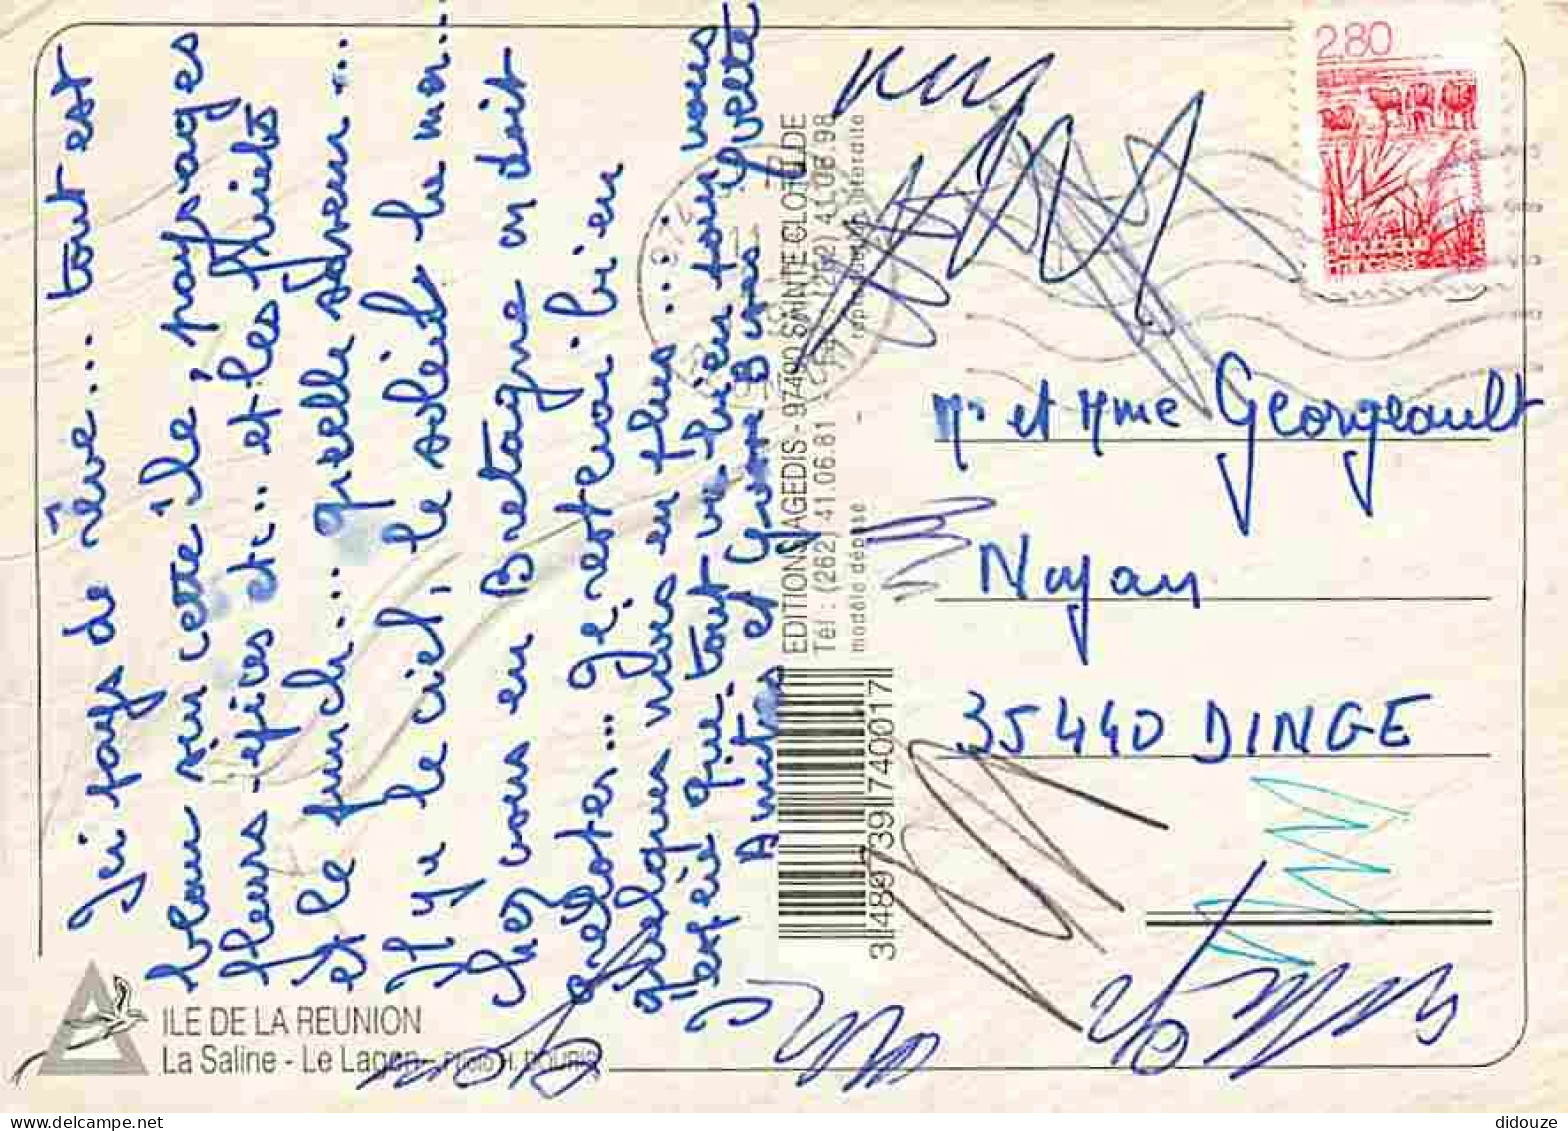 Ici pays de rêve... tout est
beau sur cette île, paysages
fleurs épices etc.. et les fruits
et le punch... quelle saveur...
Il y a le ciel, le soleil, la mer...
Chez vous en Bretagne on doit
grelotter... Je resterai bien
quelques mois en plus...
J'espère que tout va bien pour vous
Amitiés et Gros Bises Yvette
ILE DE LA REUNION
La Saline - Le Lagon - Photo H. DOURIS
EDITIONS AGEDIS - 97490 SAINTE CLOTILDE
Tél : (262) 41.06.61 (262) 41.06.98
modèle déposé - reproduction interdite
3 489739 740017
2.80
Mr et Mme Georgeault
Noyan
35440 DINGE
didouze